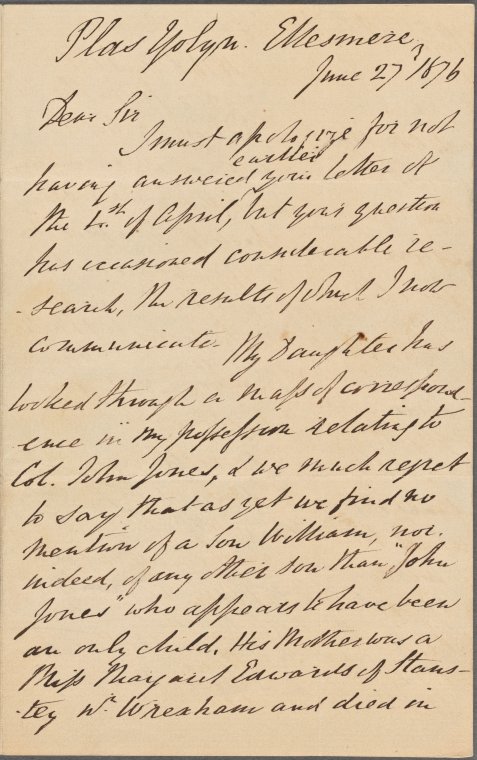 Plas Yolyn. Ellesmere
June 27th 1876
Dear Sir
I must apologize for not
having answered earlier your letter of
the 1st of April, but your question
has occasioned considerable re-
-search, the results of which I now
communicate. My Daughter has
looked through a mass of correspond-
ence in my possession relating to
Col. John Jones, & we much regret
to say that as yet we find no
mention of a Son William, nor.
indeed, of any other son than "John
Jones" who appears to have been
an only child. His Mother was a
Miss Margaret Edwards of Stans-
-tey nr. Wrexham and died in